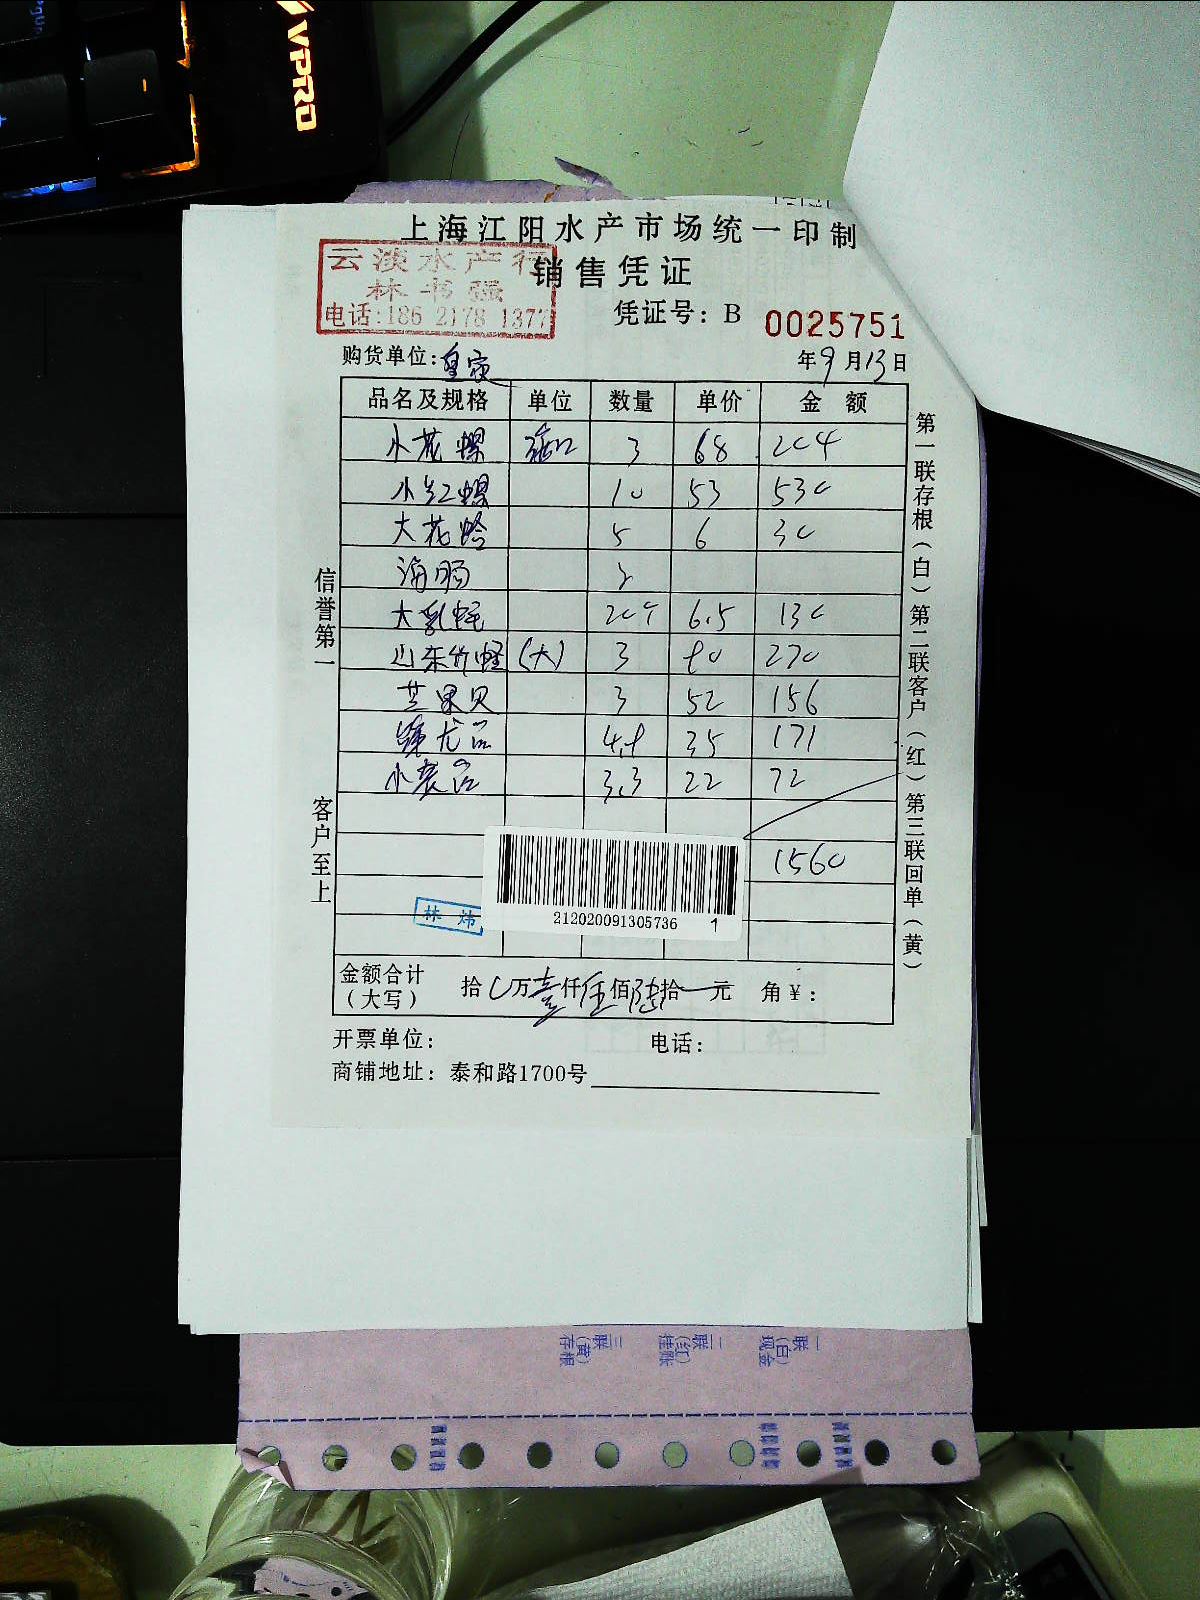 VPRO
上海江阳水产市场统一印制
云淡水产行
林书强
电话:186 2178 1377
销售凭证
凭证号: B 0025751
购货单位:皇家 年9月13日
品名及规格 单位 数量 单价 金额
小花螺 3 68 204
小红螺 10 53 530
大花蛤 5 6 30
海肠 2
大乳蛏 20个 6.5 130
山东竹蛏 (大) 3 90 270
芒果贝 3 52 156
龙 4.9 35 171
小 3.3 22 72
1560
212020091305736 1
林炜
金额合计(大写) 拾 万壹仟伍佰陆拾 元 角¥:
开票单位: 电话:
商铺地址: 泰和路1700号
信誉第一
客户至上
第一联存根(白)第二联客户(红)第三联回单(黄)
一联(白)现金
二联(红)挂账
三联(黄)存根